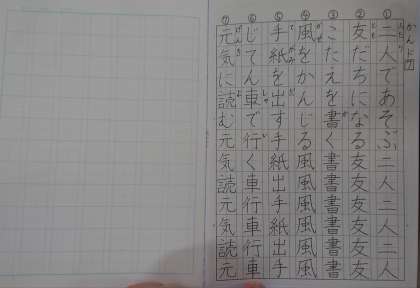 かんド
①二人であそぶ二人二人二人
②友だちになる友友友友友友
③こたえを書く書書書書書書
④風をかんじる風風風風風風
⑤手紙を出す手紙出手紙出手
⑥じてん車で行く車行車行車
⑦元気に読む元気読元気読元